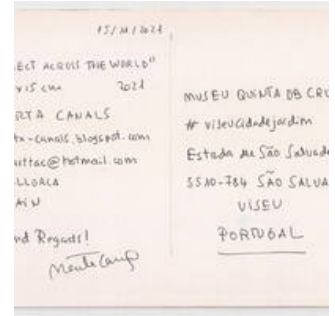 15/11/2021
ECT ACROSS THE WORLD"
2021
RTA CANALS
ta-canals.blogspot.com
@hotmail.com
LLORCA
AIN
nd Regards!
MUSEU QUINTA DA CRU
# viseucidadejardim
Estrada de São Salvado
3510-784 SÃO SALVA
VISEU
PORTUGAL